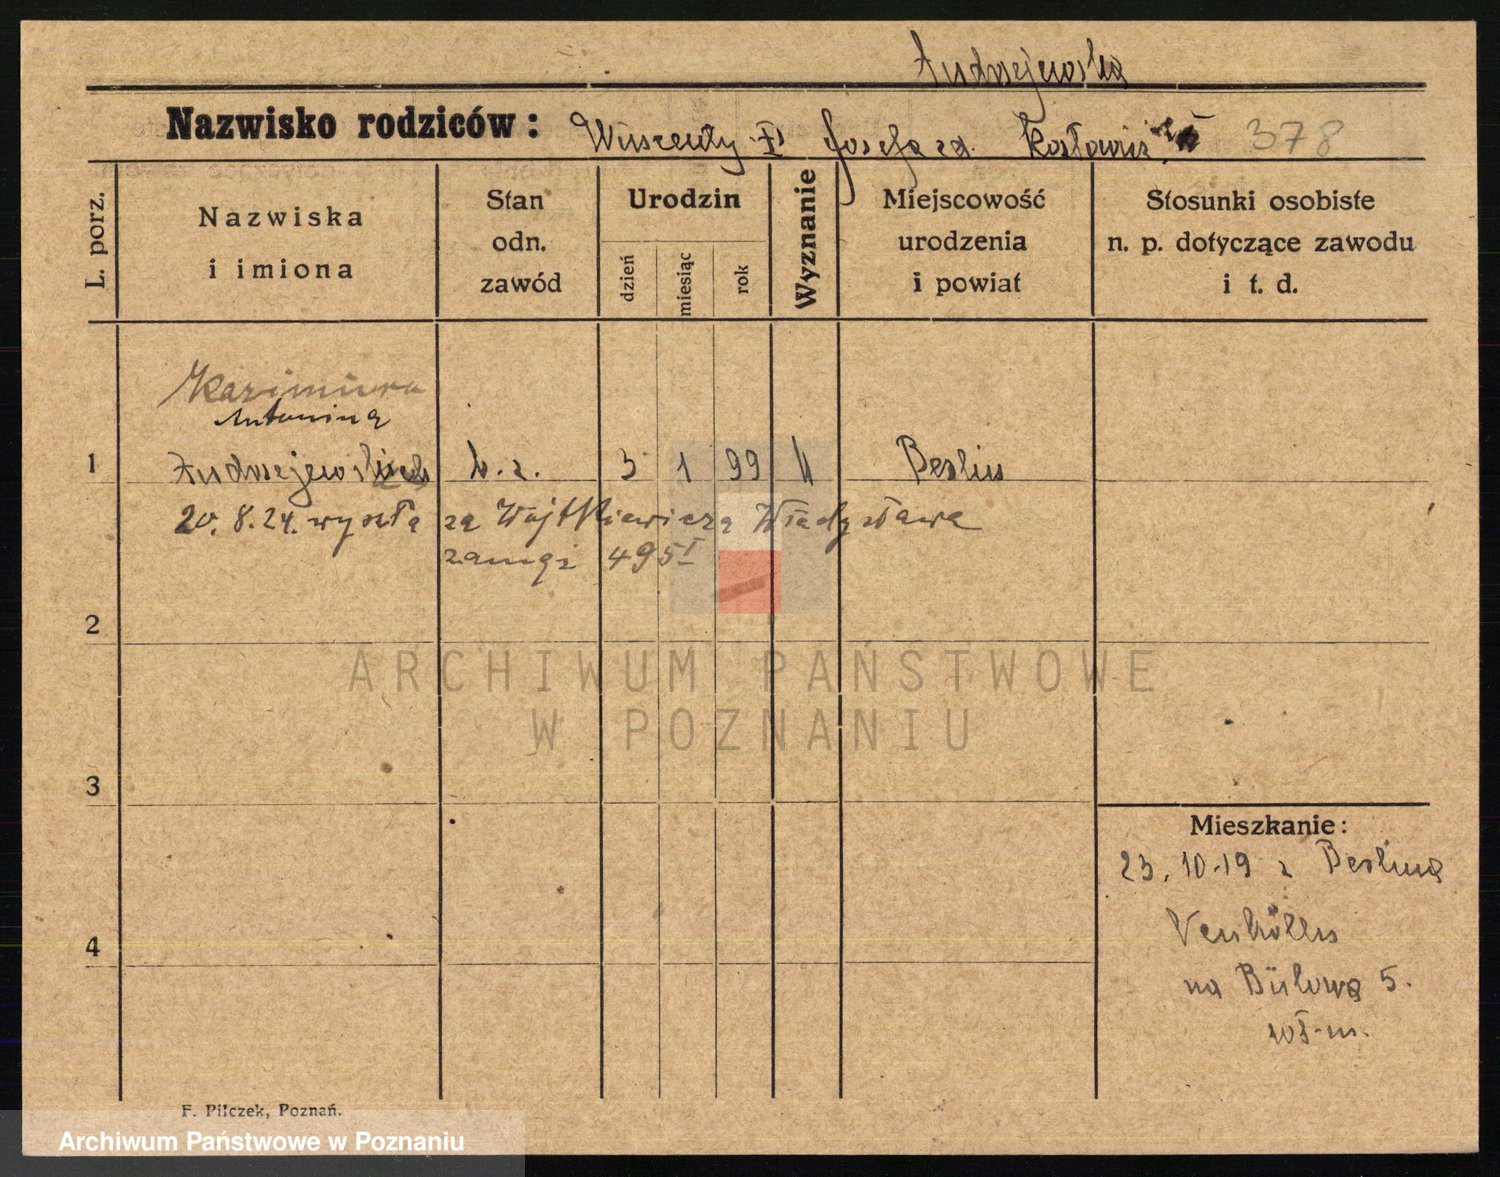 Andrzejewska
Nazwisko rodziców: Wincenty Józefa zd. 378
L. porz.
Nazwiska
i imiona
Stan
odn.
zawód
Urodzin
dzień
miesiąc
rok
Wyznanie
Miejscowość
urodzenia
i powiat
Stosunki osobiste
n. p. dotyczące zawodu
i t. d.
Kazimiera
Antonina
1 3 1 99 k Berlin
20.8.24. wyszła za Wojtkiewicza Władysława
zamąż 495 I
2
3
4
Mieszkanie:
23.10-19 z Berlina
na Bülowa 5.
wł-m.
F. Pilczek, Poznań.
ARCHIWUM PAŃSTWOWE
W POZNANIU
Archiwum Państwowe w Poznaniu